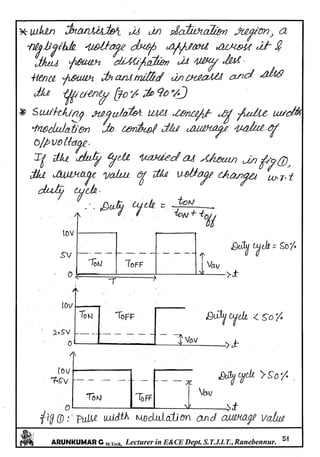 * When transistor is in saturation region, a
negligible voltage drop appears across it &
thus power dissipation is very less.
Hence power transmitted increases and also
the efficiency (70% to 90%)
* Switching regulator uses concept of pulse width
modulation to control the average value of
o/p voltage.
If the duty cycle varied as shown in fig ①,
the average value of the voltage changes w.r.t
duty cycle.
∴ Duty cycle = tON / tON + toff
10V
5V
0
TON TOFF
Vav
t
T
Duty cycle = 50%
10V
2.5V
0
TON TOFF
Vav
t
Duty cycle < 50%
10V
7.5V
0
TON TOFF
Vav
t
Duty cycle > 50%
fig ① : Pulse width modulation and average value
ARUNKUMAR G M.Tech, Lecturer in E&CE Dept. S.T.J.I.T., Ranebennur.